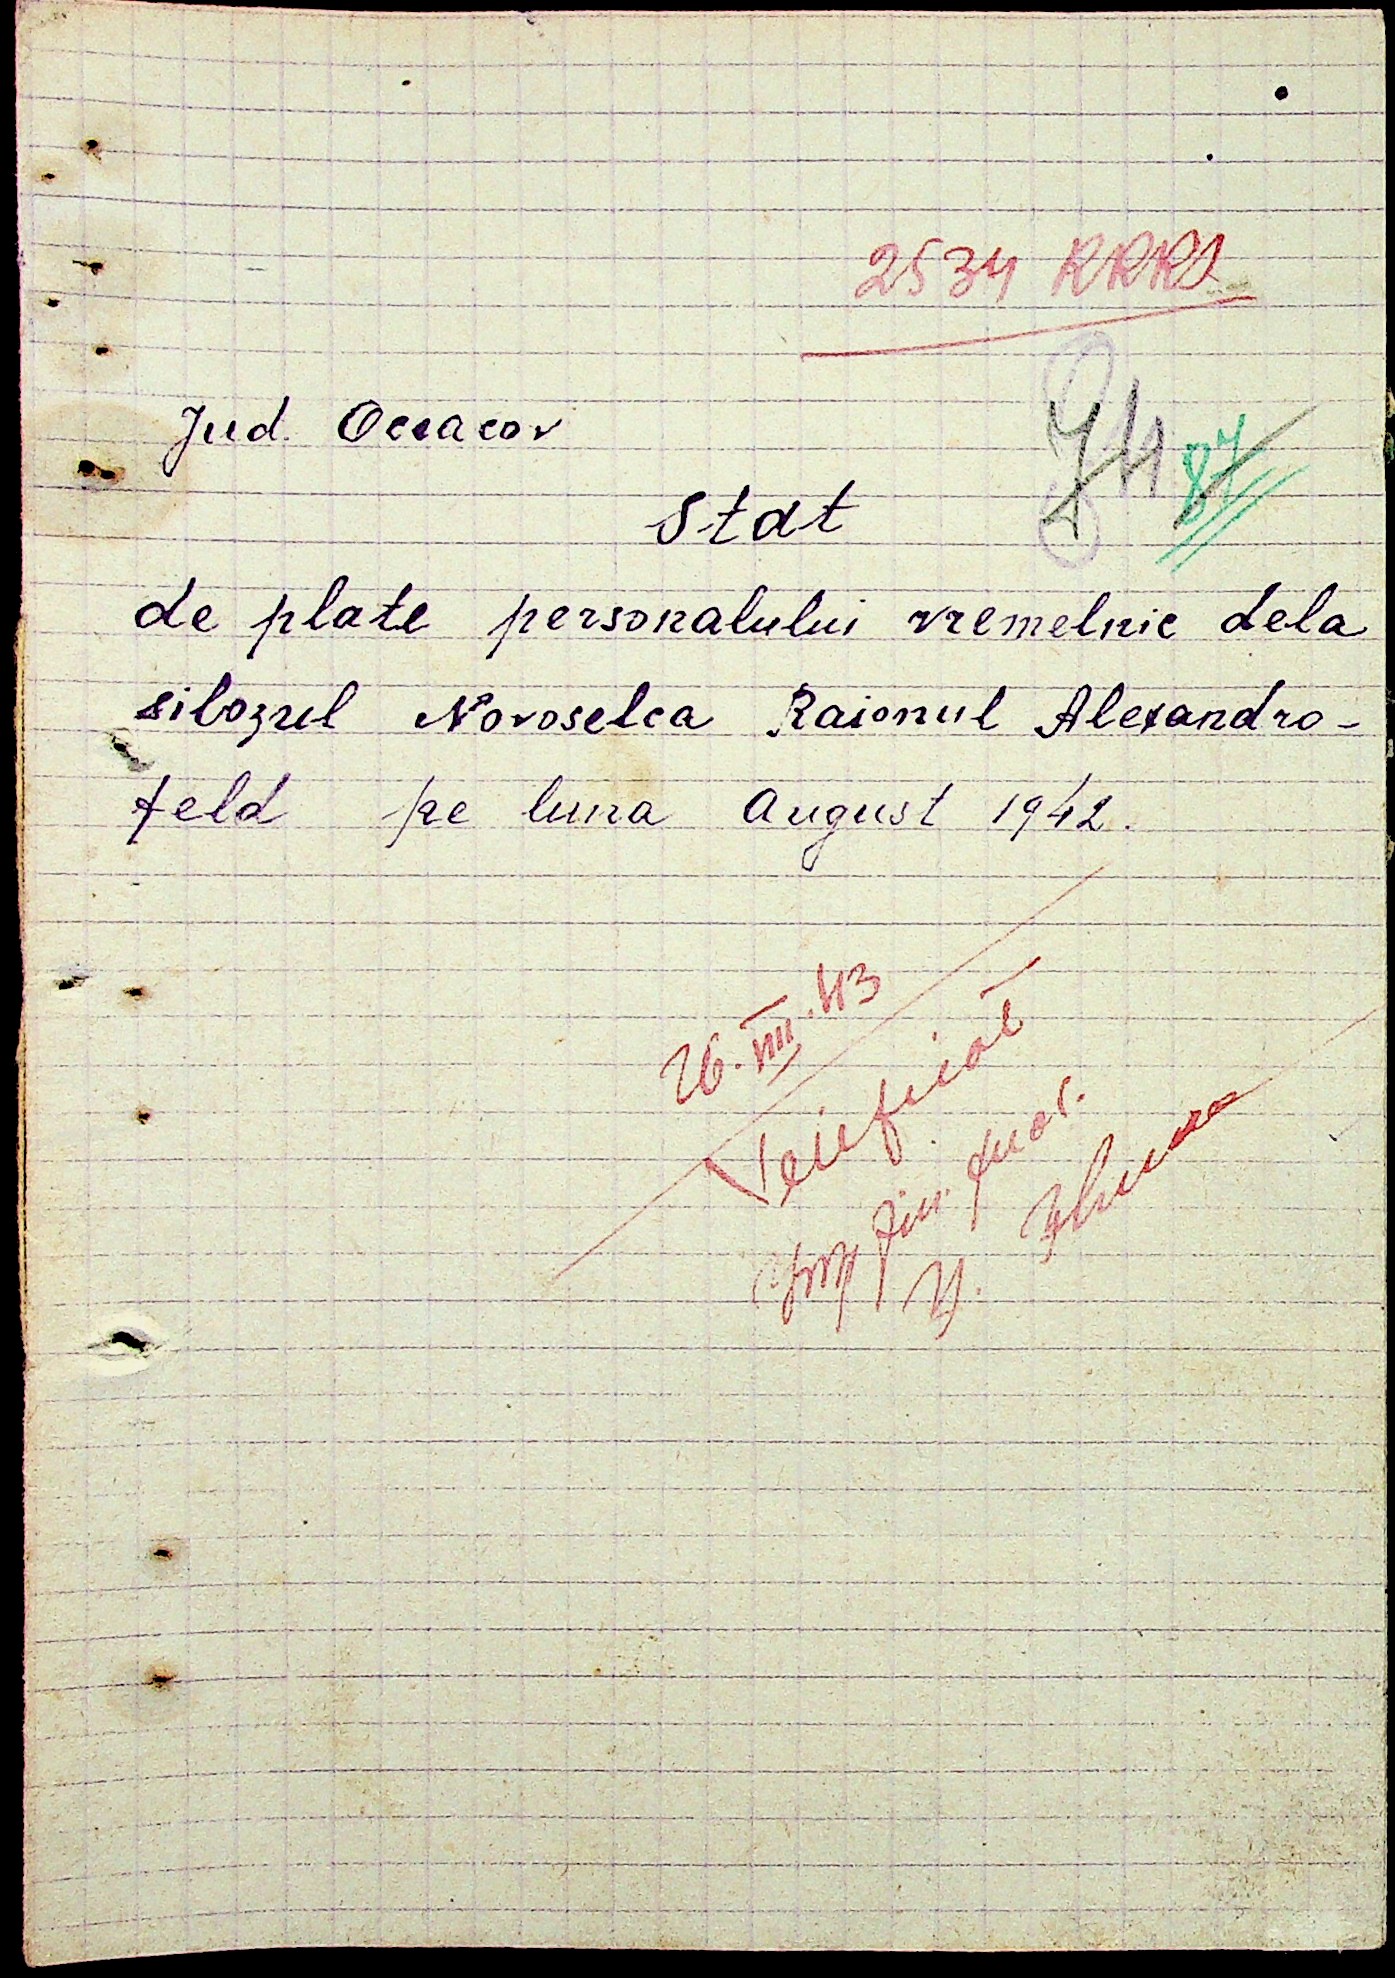 2534 RKKS
Jud. Oceacov
87
Stat
de plate personalului vremelnic dela
silozul Novoselca Raionul Alexandro-
feld pe luna August 1942.
26.VIII.43
Verificat
fin.